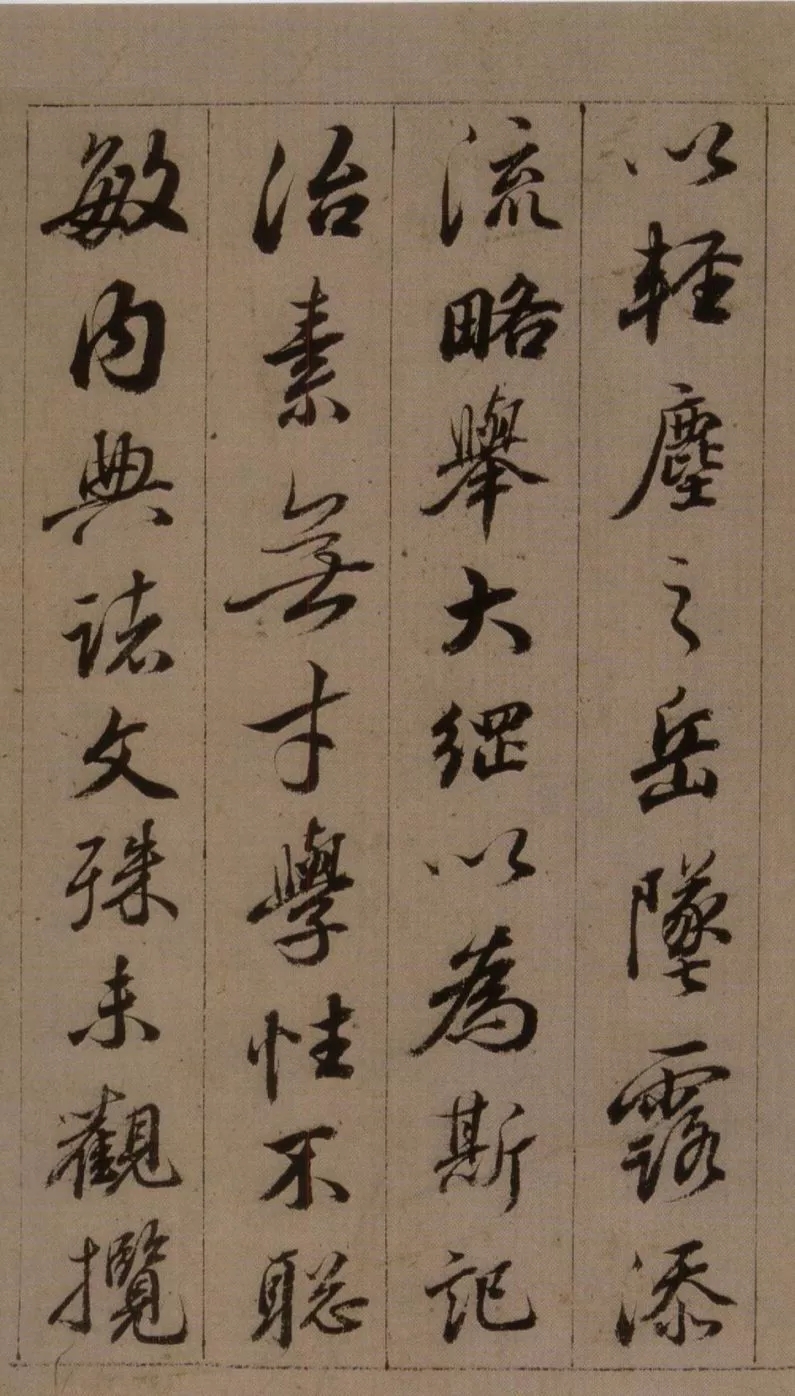 以輕塵之岳墜露添
流略舉大綱以為斯記
治素無才學性不聡
敏内典諸文殊未觀攬